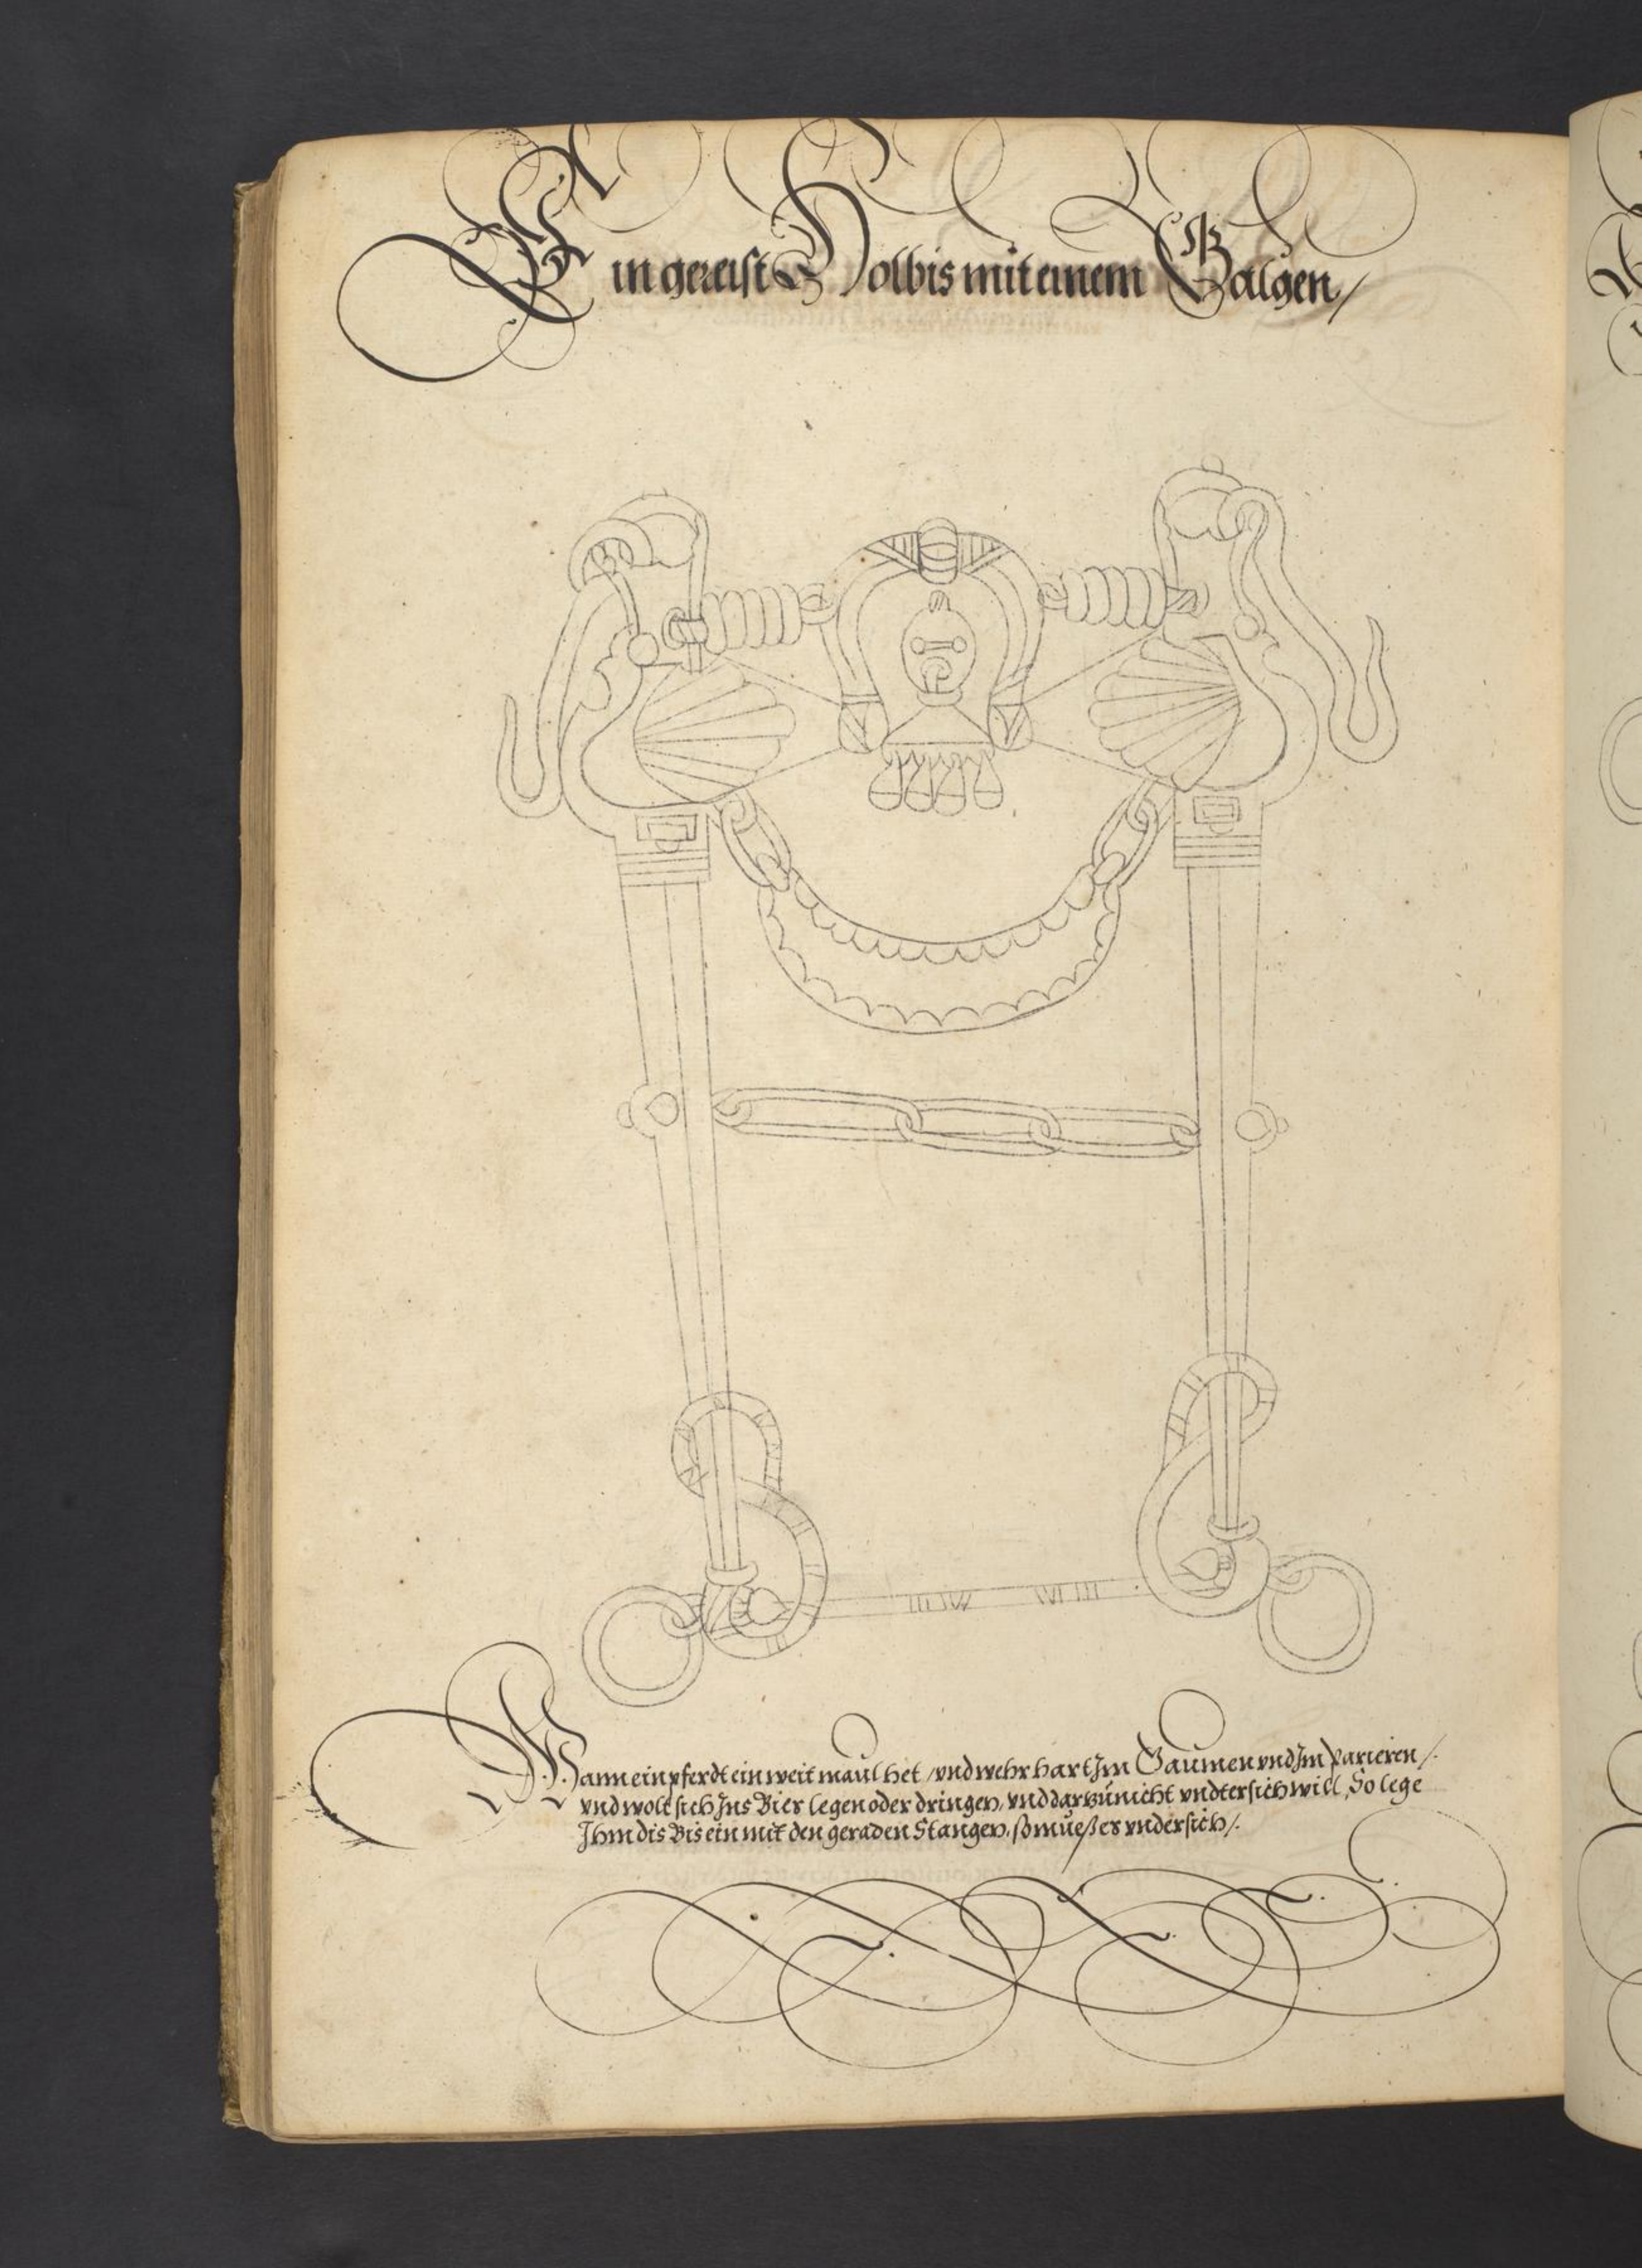 Ein gereist Holbis mit einem Galgen /
Wann ein pferdt ein weit maul het / vnd wehr hart Jm Gaumen vnd Jm parieren /.
vnd wolt sich Jns Bier legen oder dringen, vnd darzu nicht vndtersich will, So lege
Jhm dis Bis ein mit den geraden Stangen, so mueß er vndersich /.